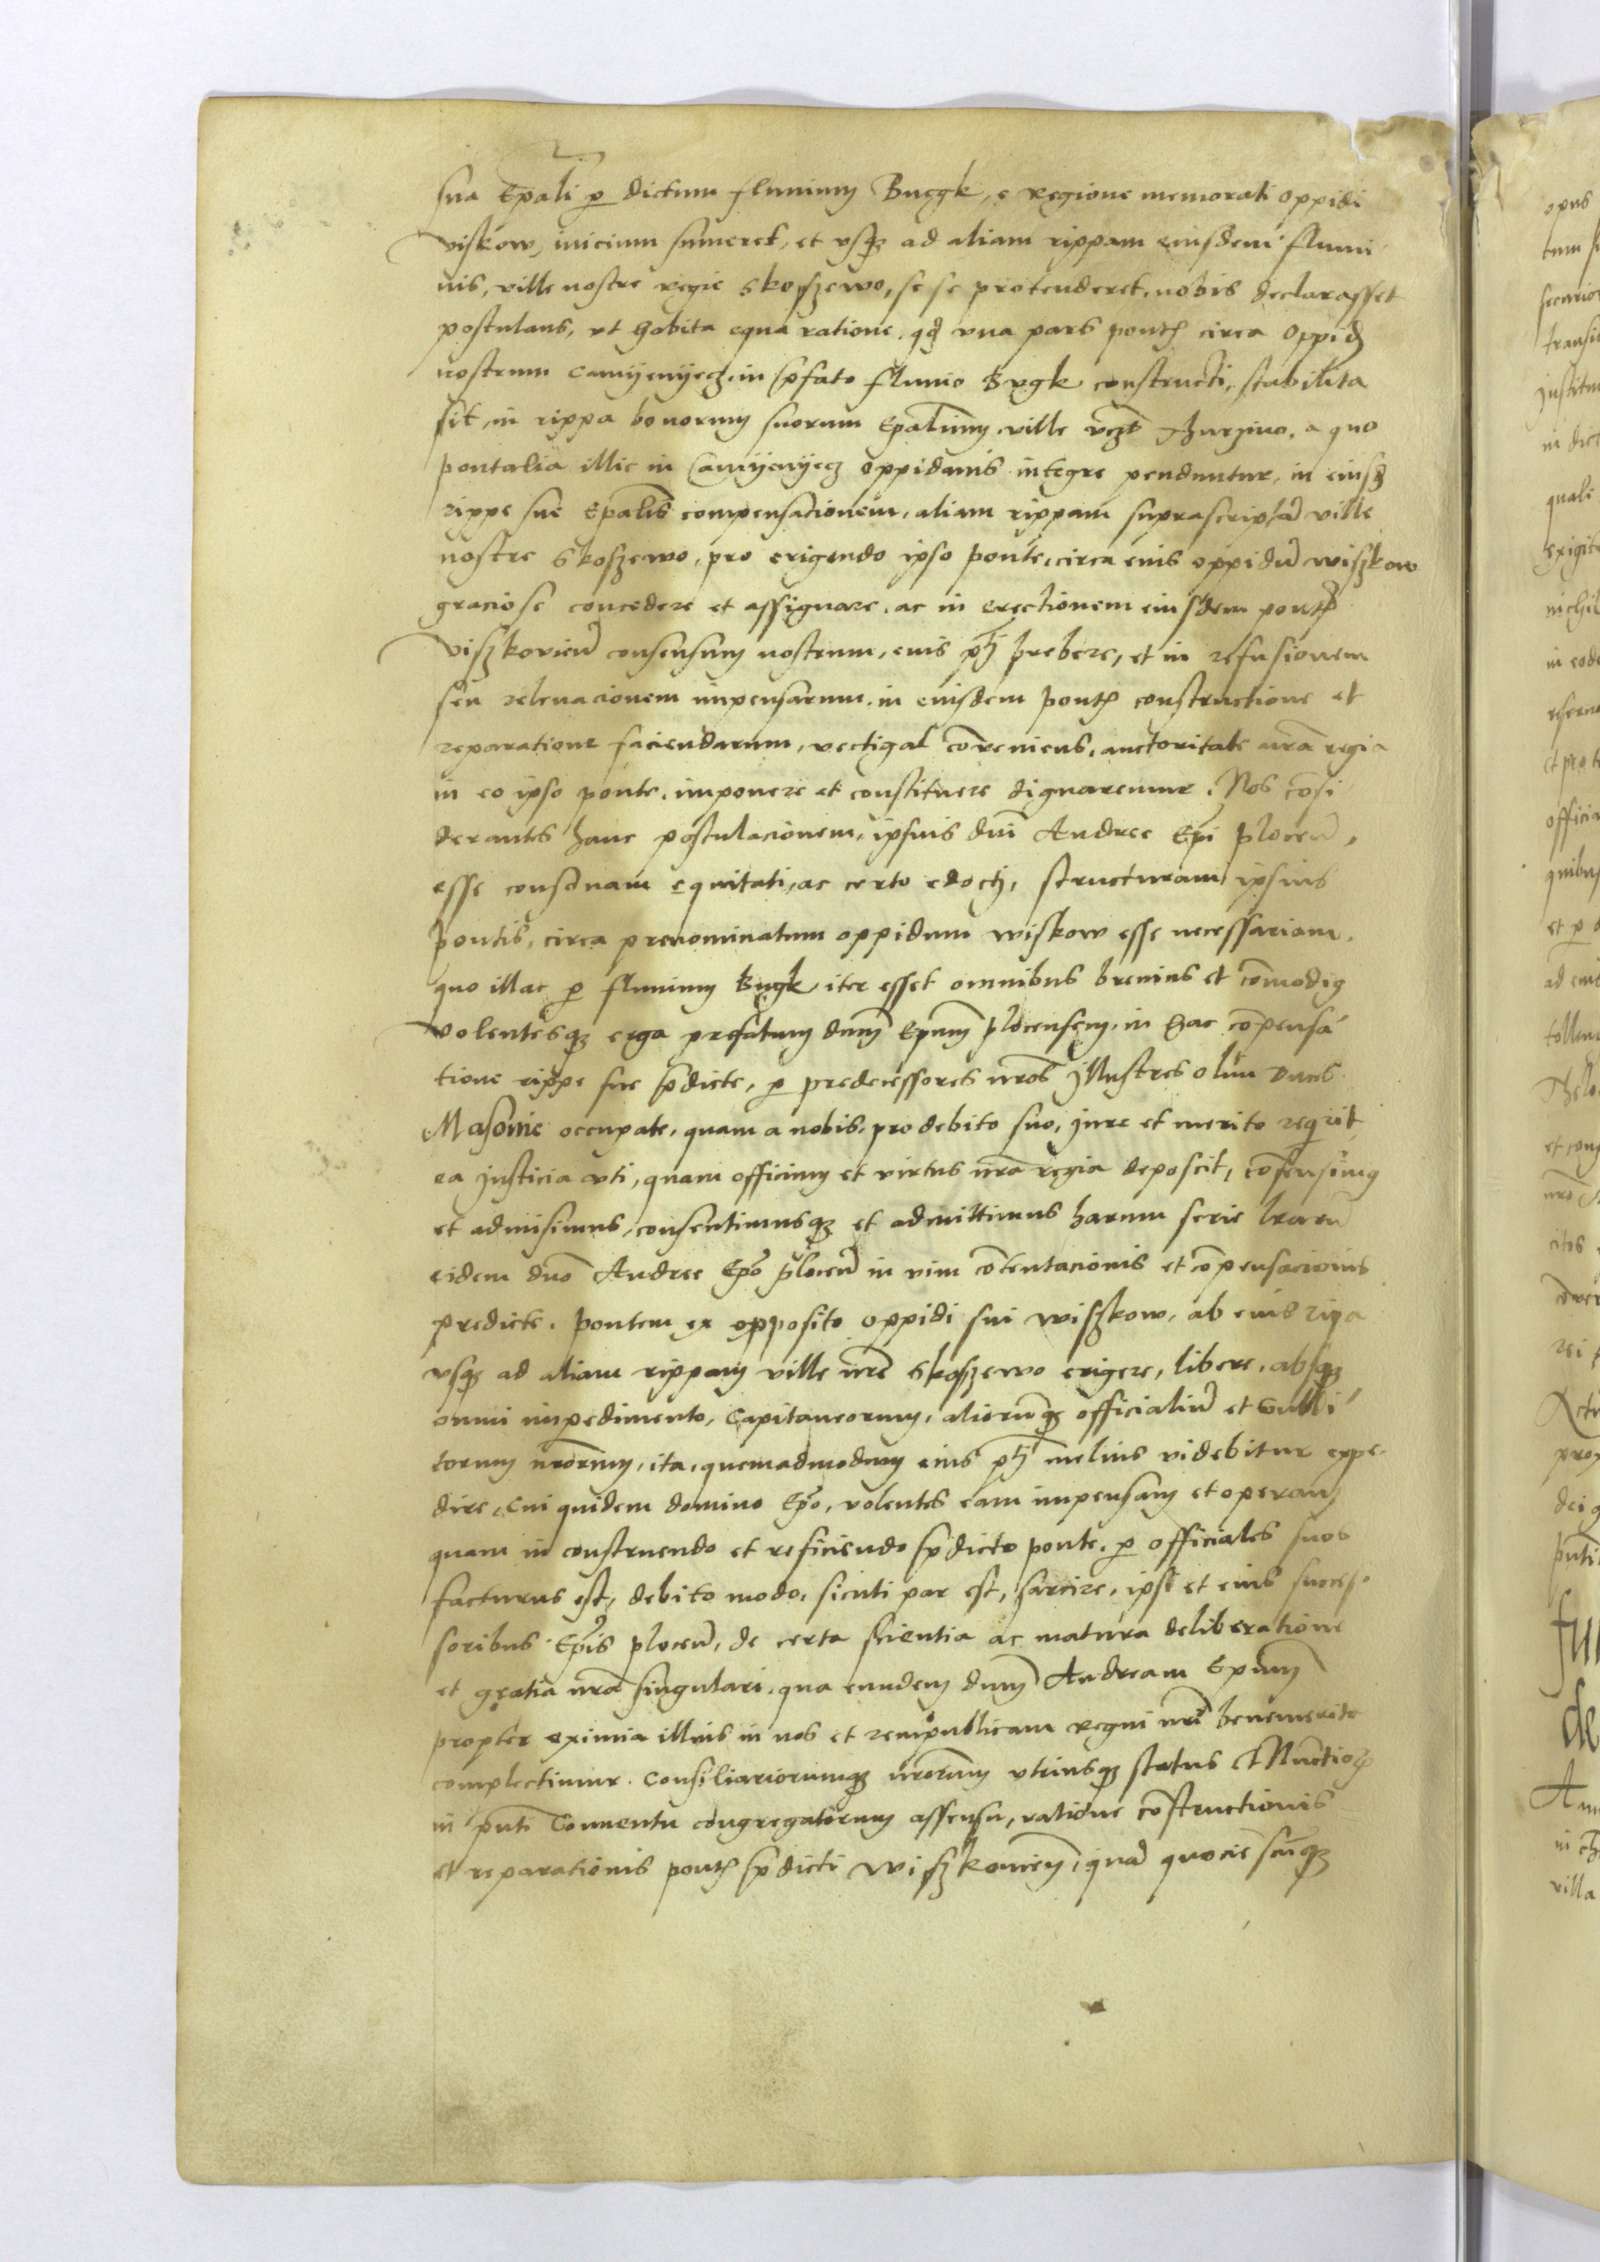 sua Ep̄ali p dictum fluuium Buegk, e regione memorati oppidi
viskow, inicium sumeret, et vsq3 ad aliam rippam eiusdem flumi
nis, ville nostre regie Skoszewo, se se protenderet, nobis declarasset
postulans, vt habita equa ratione, qđ vna pars pontis circa Oppid
nostrum Camyenyecz, in p̄fato fluuio Bugk constructi, stabilita
sit, in rippa bonorum suorum Ep̄alium, ville vcz Thurzino, a quo
pontalia illic in Camyenyecz oppidanis integre penduntur, in eiusd
rippe sue Ep̄alis compensacionem, aliam rippam suprascriptā ville
nostre Skoszewo, pro erigendo ipso ponte, circa eius oppidū wiszkow
graciose concedere et assignare, ac in erectionem eiusdem pontis
viszkovieñ consensum nostrum, eius ptj prebere, et in refusionem
seu releuacionem impensarum, in eiusdem pontis constructione et
reparatione faciendarum, vectigal cōveniens, auctoritate nrā regia
in eo ipso ponte, imponere et constituere dignaremur. Nos cōsi
derantes hanc postulacionem, ipsius dnī Andree Epī ploceñ,
esse consonam equitati, ac certo edocti, structuram ipsius
pontis, circa prenominatum oppidum wiskow esse necessariam,
quo illac p fluuium Bugk iter esset omnibus breuius et cōmodiꝯ
volentesq3 erga prefatum dnm̄ Epum̄ plocensem, in hac cōpensa
tione rippe sue p̄dicte, p predecessores nrōs Jllustres olim duces
Masouie occupate, quam a nobis, pro debito suo, jure et merito reqrit,
ea justicia vti, quam officium et virtus nrā regia deposcit, cōsensimꝯ
et admisimus, consentimusq3 et admittimus harum serie lrārū
eidem dnō Andree Epō ploceñ in vim cōtentacionis et cōpensacionis
predicte, pontem ex opposito oppidi sui wiszkow, ab eius ripa
vsq3 ad aliam rippam ville nrē Skoszewo erigere, libere, absq3
omni impedimento, Capitaneorum, aliorūq3 officialiū et subdi
torum nrōrum, ita, quemadmodum eius ptj melius videbitur expe
dire, Cui quidem domino Epō, volentes eam impensam et operam
quam in construendo et reficiendo p̄dicto ponte, p officiales suos
facturus est, debito modo, sicuti par est, sarcire, ipsi et eius succes
soribus Ep̄is ploceñ, de certa scientia ac matura deliberatione
et gratia nrā singulari, qua eundem dnm̄ Andream Epum̄
propter eximia illius in nos et rempublicam regni nrī benemerita
complectimur. Consiliariorumq3 nrōrum vtriusq3 status et Nuctiorꝝ
in pn̄ti Conuentu congregatorum assensu, ratione cōstructionis
et reparationis pontis p̄dicti wiszkouieñ, quā quociēscūq3